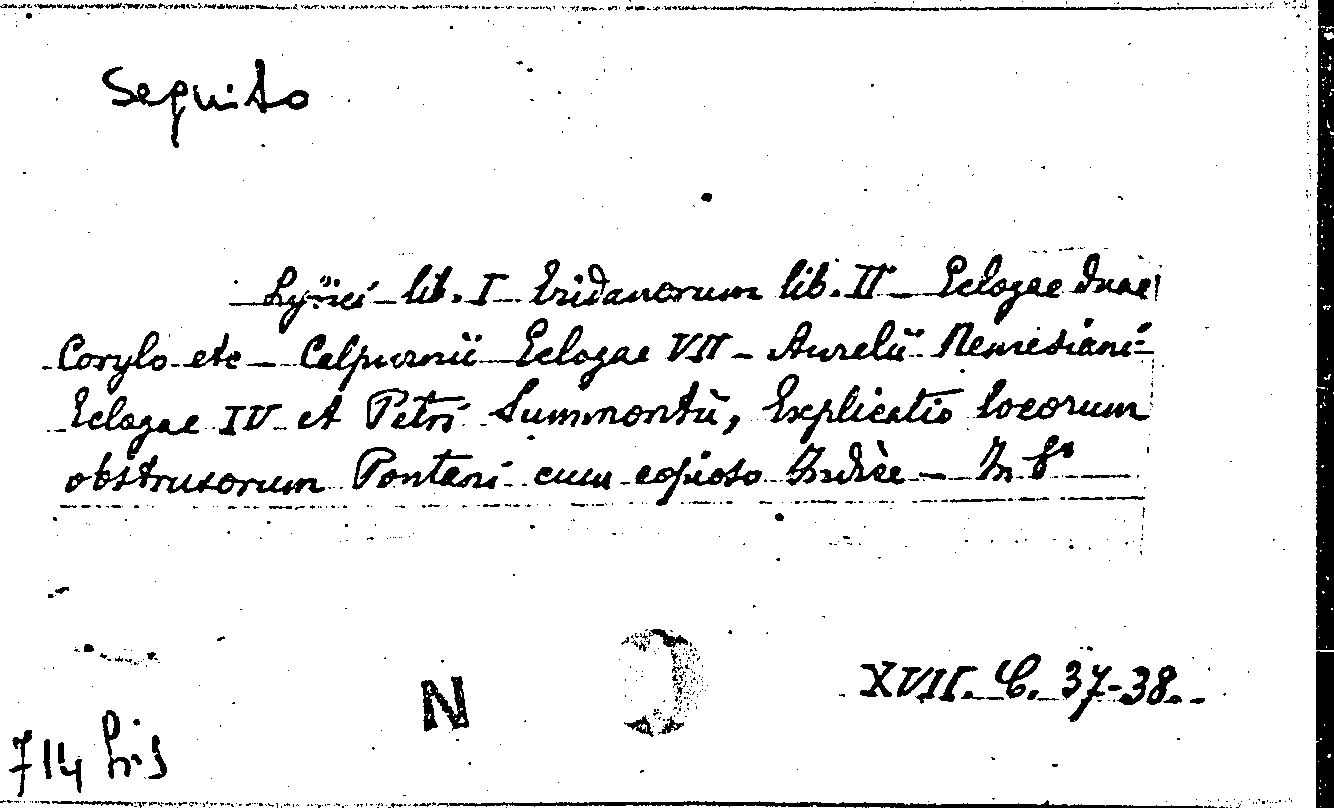 Seguito
— Lyrici – lib. I Eridanorum lib. II – Eclogae duae
Corylo etc – Calpurnii Eclogae VII – Aurelii Nemesiani
Eclogae IV et Petri Summontii, Explicatio locorum
obstrusorum Pontani cum copioso Indice – In 8°
N
XVII. C. 37-38.
714 bis